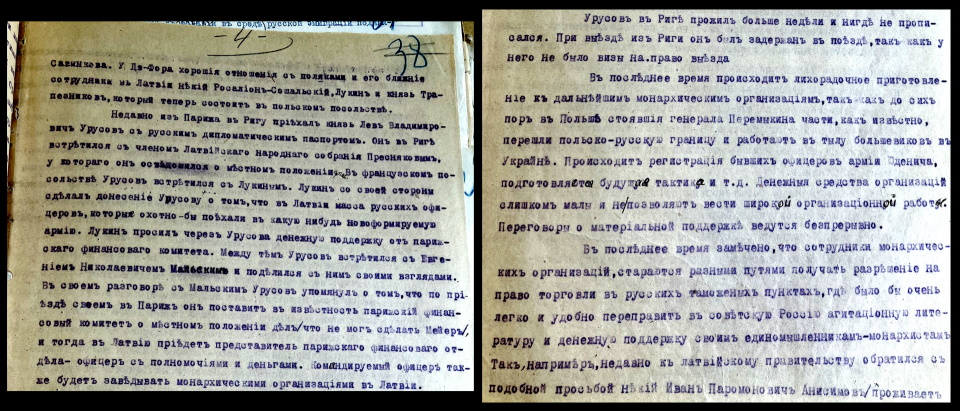 въ средѣ русской эмиграціи
-4-
38
Савинкова. У Дв-Фора хорошія отношенія съ поляками и его ближніе
сотрудники въ Латвіи нѣкій Росаліон-Сошальскій, Лукинъ и князь Тра-
пезниковъ, который теперь состоитъ въ польскомъ посольствѣ.
Недавно изъ Парижа въ Ригу пріѣхалъ князь Левъ Владимиро-
вичъ Урусовъ съ русским дипломатическим паспортомъ. Онъ въ Ригѣ
встрѣтился съ членомъ Латвійскаго Народнаго собранія Пресняковымъ,
у котораго онъ освѣдомился о мѣстномъ положеніи. Въ французском по-
сольствѣ Урусовъ встрѣтился съ Лукинымъ. Лукин со своей стороны
сдѣлалъ донесеніе Урусову о томъ, что въ Латвіи масса русских офи-
церовъ, которые охотно-бы поѣхали въ какую нибудь новоформируемую
армію. Лукин просилъ черезъ Урусова денежную поддержку отъ париж-
скаго финансоваго комитета. Между тѣмъ Урусовъ встрѣтился съ Евге-
ніем Николаевичем Мальскимъ и подѣлился съ нимъ своими взглядами.
Въ своем разговорѣ съ Мальским Урусовъ упомянулъ о томъ, что по прі-
ѣздѣ своемъ въ Парижъ онъ поставитъ въ извѣстность парижскій финан-
совый комитетъ о мѣстномъ положеніи дѣлъ/что не могъ сдѣлать Мейеръ/,
и тогда въ Латвію пріѣдетъ представитель парижскаго финансоваго от-
дѣла- офицеръ съ полномочіями и деньгами. Командируемый офицеръ так-
же будетъ завѣдывать монархическими организаціями въ Латвіи.
Урусовъ въ Ригѣ прожилъ больше недѣли и нигдѣ не пропи-
сался. При выѣздѣ изъ Риги онъ былъ задержанъ въ поѣздѣ, такъ какъ у
него не было визы на.право выѣзда
Въ послѣднее время происходитъ лихорадочное приготовле-
ніе къ дальнѣйшимъ монархическим организаціямъ, такъ какъ до сихъ
поръ въ Польшѣ стоявшія генерала Перемыкина части, какъ извѣстно,
перешли польско-русскую границу и работаютъ въ тылу большевиковъ въ
Украйнѣ. Происходитъ регистрація бывшихъ офицеровъ арміи Юденича,
подготовляется будущая тактика и т.д. Денежныя средства организацій
слишкомъ малы и не/позволяютъ вести широкой организаціонной работы.
Переговоры о матеріальной поддержкѣ ведутся безпрерывно.
Въ послѣднее время замѣчено, что сотрудники монархичес-
ких организацій, стараются разными путями получать разрѣшеніе на
право торговли въ русских таможеныхъ пунктахъ, гдѣ было бы очень
легко и удобно переправить въ совѣтскую Россію агитаціонную лите-
ратуру и денежную поддержку своимъ единомышленникамъ-монархистамъ
Такъ, напримѣръ, недавно къ латвійскому правительству обратился съ
подобной просьбой нѣкій Иванъ Парамоновичъ Анисимовъ/проживаетъ